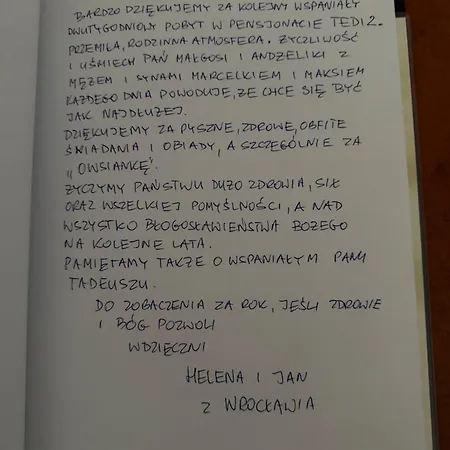 BARDZO DZIĘKUJEMY ZA KOLEJNY WSPANIAŁY
DWUTYGODNIOWY POBYT W PENSJONACIE TEDI 2.
PRZEMIŁA, RODZINNA ATMOSFERA. ŻYCZLIWOŚĆ
I UŚMIECH PAŃ MAŁGOSI I ANDŻELIKI Z
MĘŻEM I SYNAMI MARCELKIEM I MAKSIEM
KAŻDEGO DNIA POWODUJE, ŻE CHCE SIĘ BYĆ
JAK NAJDŁUŻEJ.
DZIĘKUJEMY ZA PYSZNE, ZDROWE, OBFITE
ŚNIADANIA I OBIADY, A SZCZEGÓLNIE ZA
„OWSIANKĘ".
ŻYCZYMY PAŃSTWU DUŻO ZDROWIA, SIŁ
ORAZ WSZELKIEJ POMYŚLNOŚCI, A NAD
WSZYSTKO BŁOGOSŁAWIEŃSTWA BOŻEGO
NA KOLEJNE LATA.
PAMIĘTAMY TAKŻE O WSPANIAŁYM PANU
TADEUSZU.
DO ZOBACZENIA ZA ROK, JEŚLI ZDROWIE
I BÓG POZWOLI
WDZIĘCZNI
HELENA I JAN
Z WROCŁAWIA